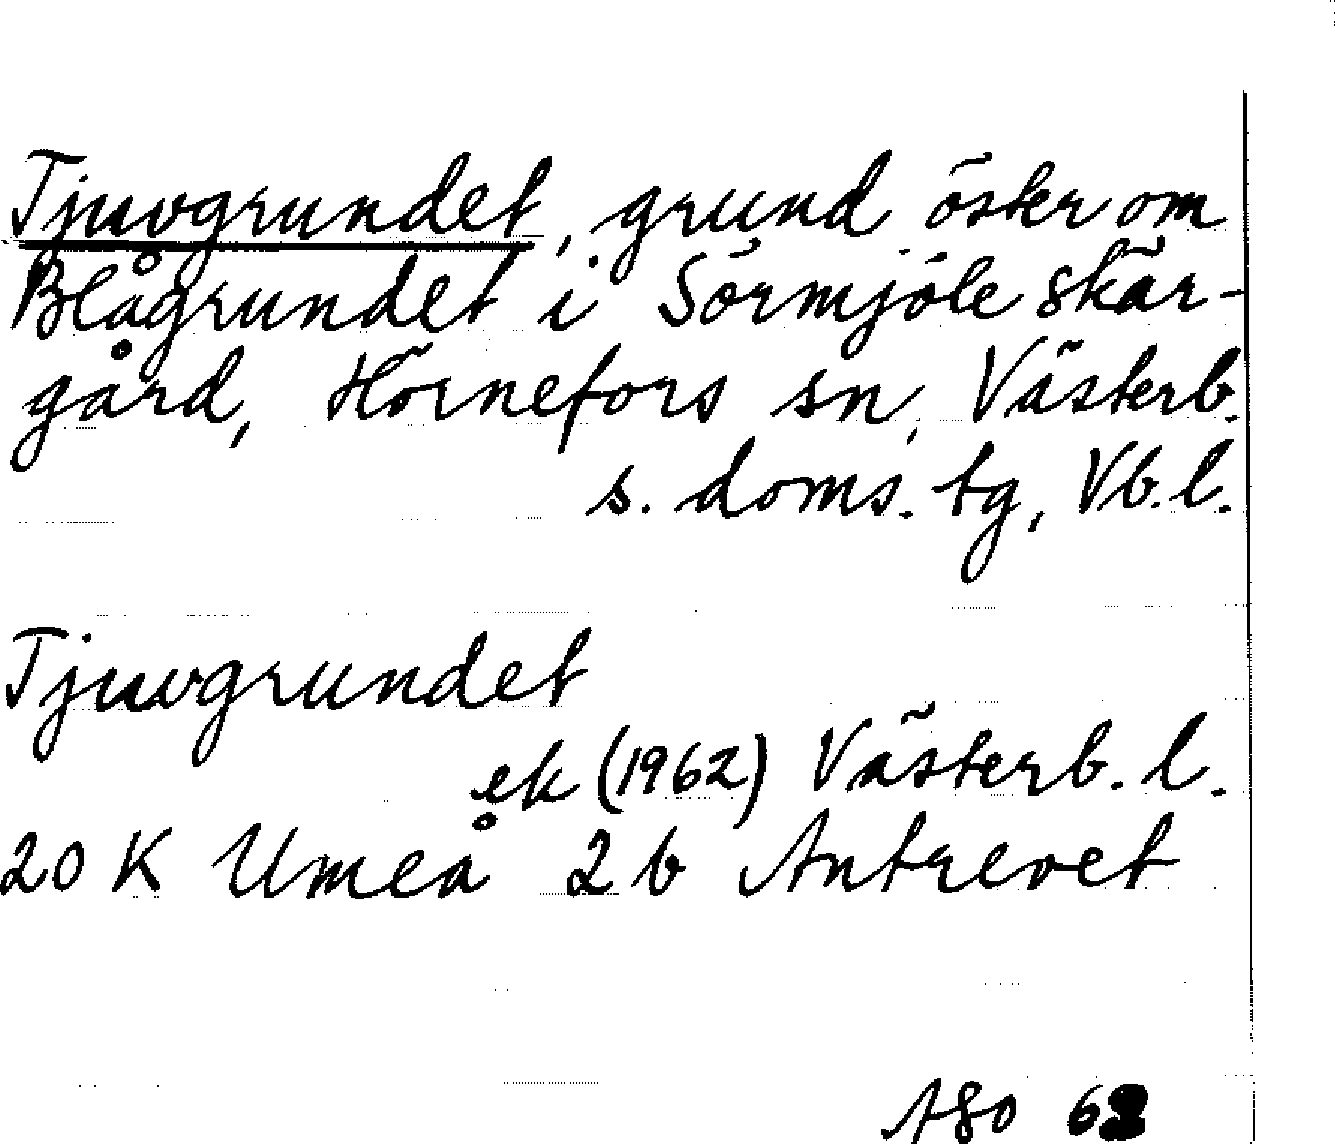 Tjuvgrundet, grund öster om
Blågrundet i Sörmjöle skär-
gård, Hörnefors sn, Västerb.
s. doms. tg, Vb. l.
Tjuvgrundet
ek (1962) Västerb. l.
20 K Umeå 2 b Antrevet